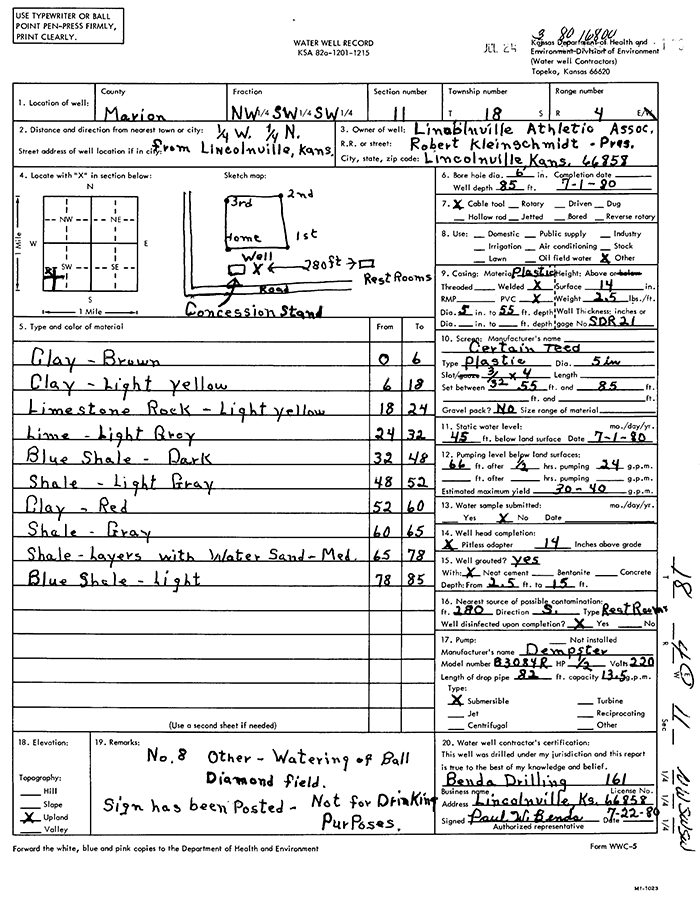 USE TYPEWRITER OR BALL
POINT PEN-PRESS FIRMLY,
PRINT CLEARLY.
WATER WELL RECORD
KSA 82a-1201-1215
JUL 25
3 80 16800
Kansas Department of Health and
Environment-Division of Environment
(Water well Contractors)
Topeka, Kansas 66620
1. Location of well: County Marion Fraction NW 1/4 SW 1/4 SW 1/4 Section number 11 Township number T 18 S Range number R 4 E/W
2. Distance and direction from nearest town or city: 1/4 W. 1/4 N.
Street address of well location if in city: From Lincolnville, Kans.
3. Owner of well: Linoblnville Athletic Assoc.
R.R. or street: Robert Kleinschmidt - Pres.
City, state, zip code: Lincolnville Kans. 66858
4. Locate with "X" in section below:
N
NW NE
W E
SW SE
S
1 Mile
1 Mile
Sketch map:
3rd 2nd
Home 1st
Well
X 280ft Rest Rooms
Road
Concession Stand
5. Type and color of material From To
Clay - Brown 0 6
Clay - Light yellow 6 18
Limestone Rock - Light yellow 18 24
Lime - Light Gray 24 32
Blue Shale - Dark 32 48
Shale - Light Gray 48 52
Clay - Red 52 60
Shale - Gray 60 65
Shale - Layers with Water Sand - Med. 65 78
Blue Shale - Light 78 85
(Use a second sheet if needed)
6. Bore hole dia. 6 in. Completion date
Well depth 85 ft. 7-1-80
7. X Cable tool Rotary Driven Dug
Hollow rod Jetted Bored Reverse rotary
8. Use: Domestic Public supply Industry
Irrigation Air conditioning Stock
Lawn Oil field water X Other
9. Casing: Material Plastic Height: Above or below
Threaded Welded X Surface 14 in.
RMP PVC X Weight 2.5 lbs./ft.
Dia. 5 in. to 55 ft. depth Wall Thickness: inches or
Dia. in. to ft. depth gage No SDR21
10. Screen: Manufacturer's name
Certain Teed
Type Plastic Dia. 5 in
Slot/gauze 3/32 x 4 Length
Set between 55 ft. and 85 ft.
ft. and ft.
Gravel pack? No Size range of material
11. Static water level: mo./day/yr.
45 ft. below land surface Date 7-1-80
12. Pumping level below land surfaces:
66 ft. after 1/2 hrs. pumping 24 g.p.m.
ft. after hrs. pumping g.p.m.
Estimated maximum yield 30-40 g.p.m.
13. Water sample submitted: mo./day/yr.
Yes X No Date
14. Well head completion:
X Pitless adapter 14 Inches above grade
15. Well grouted? yes
With: X Neat cement Bentonite Concrete
Depth: From 2.5 ft. to 15 ft.
16. Nearest source of possible contamination:
ft. 280 Direction S. Type Rest Rooms
Well disinfected upon completion? X Yes No
17. Pump: Not installed
Manufacturer's name Dempster
Model number B3084R HP 1/2 Volts 220
Length of drop pipe 82 ft. capacity 13.5 g.p.m.
Type:
X Submersible Turbine
Jet Reciprocating
Centrifugal Other
18. Elevation:
Topography:
Hill
Slope
X Upland
Valley
19. Remarks:
No. 8 Other - Watering of Ball
Diamond field.
Sign has been Posted - Not for Drinking
Purposes.
20. Water well contractor's certification:
This well was drilled under my jurisdiction and this report
is true to the best of my knowledge and belief.
Benda Drilling 161
Business name License No.
Address Lincolnville, Ks. 66858
Signed Paul W. Benda Date 7-22-80
Authorized representative
T 18
R 4 W
Sec 11
1/4 1/4 1/4 NWSWSW
Forward the white, blue and pink copies to the Department of Health and Environment
Form WWC-5
M1-1023